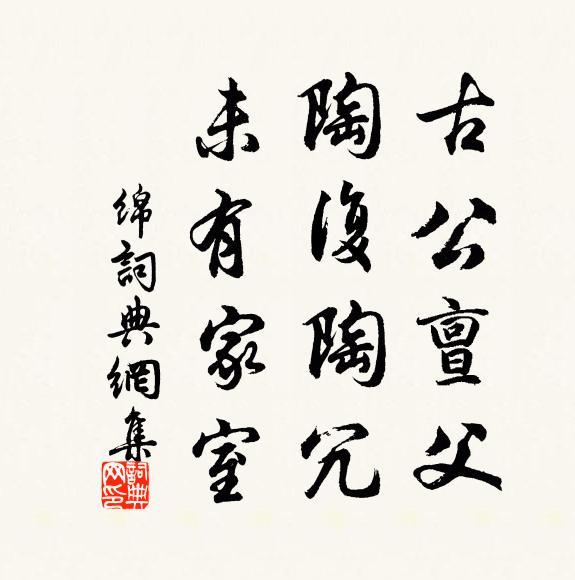 古公亶父
陶復陶冗
未有家室
綿詞典網集
詞典网印